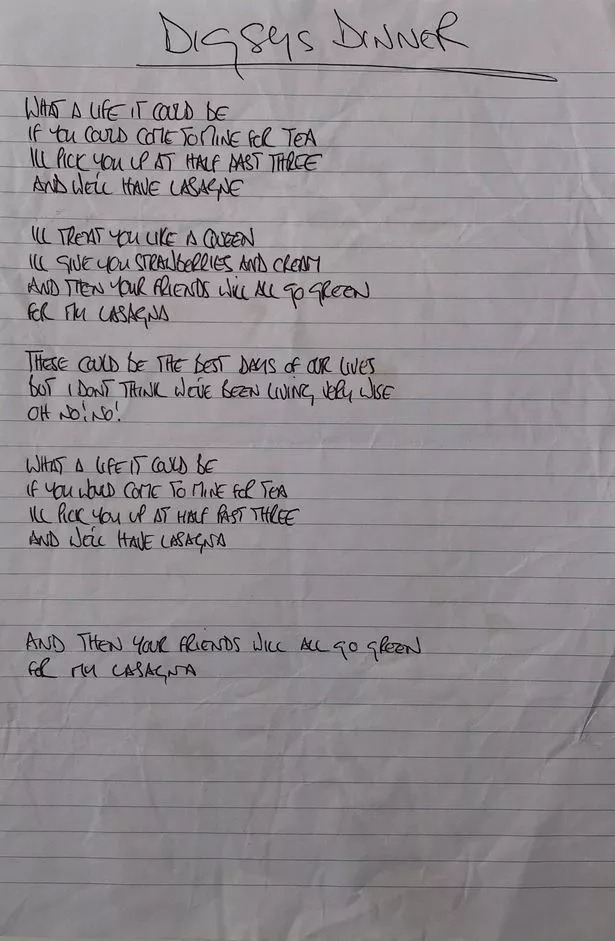 DIGSYS DINNER
WHAT A LIFE IT COULD BE
IF YOU COULD COME TO MINE FOR TEA
ILL PICK YOU UP AT HALF PAST THREE
AND WE'LL HAVE LASAGNE
ILL TREAT YOU LIKE A QUEEN
ILL GIVE YOU STRAWBERRIES AND CREAM
AND THEN YOUR FRIENDS WILL ALL GO GREEN
FOR MY LASAGNA
THESE COULD BE THE BEST DAYS OF OUR LIVES
BUT I DONT THINK WE'VE BEEN LIVING VERY WISE
OH NO! NO!
WHAT A LIFE IT COULD BE
IF YOU WOULD COME TO MINE FOR TEA
ILL PICK YOU UP AT HALF PAST THREE
AND WE'LL HAVE LASAGNA
AND THEN YOUR FRIENDS WILL ALL GO GREEN
FOR MY LASAGNA